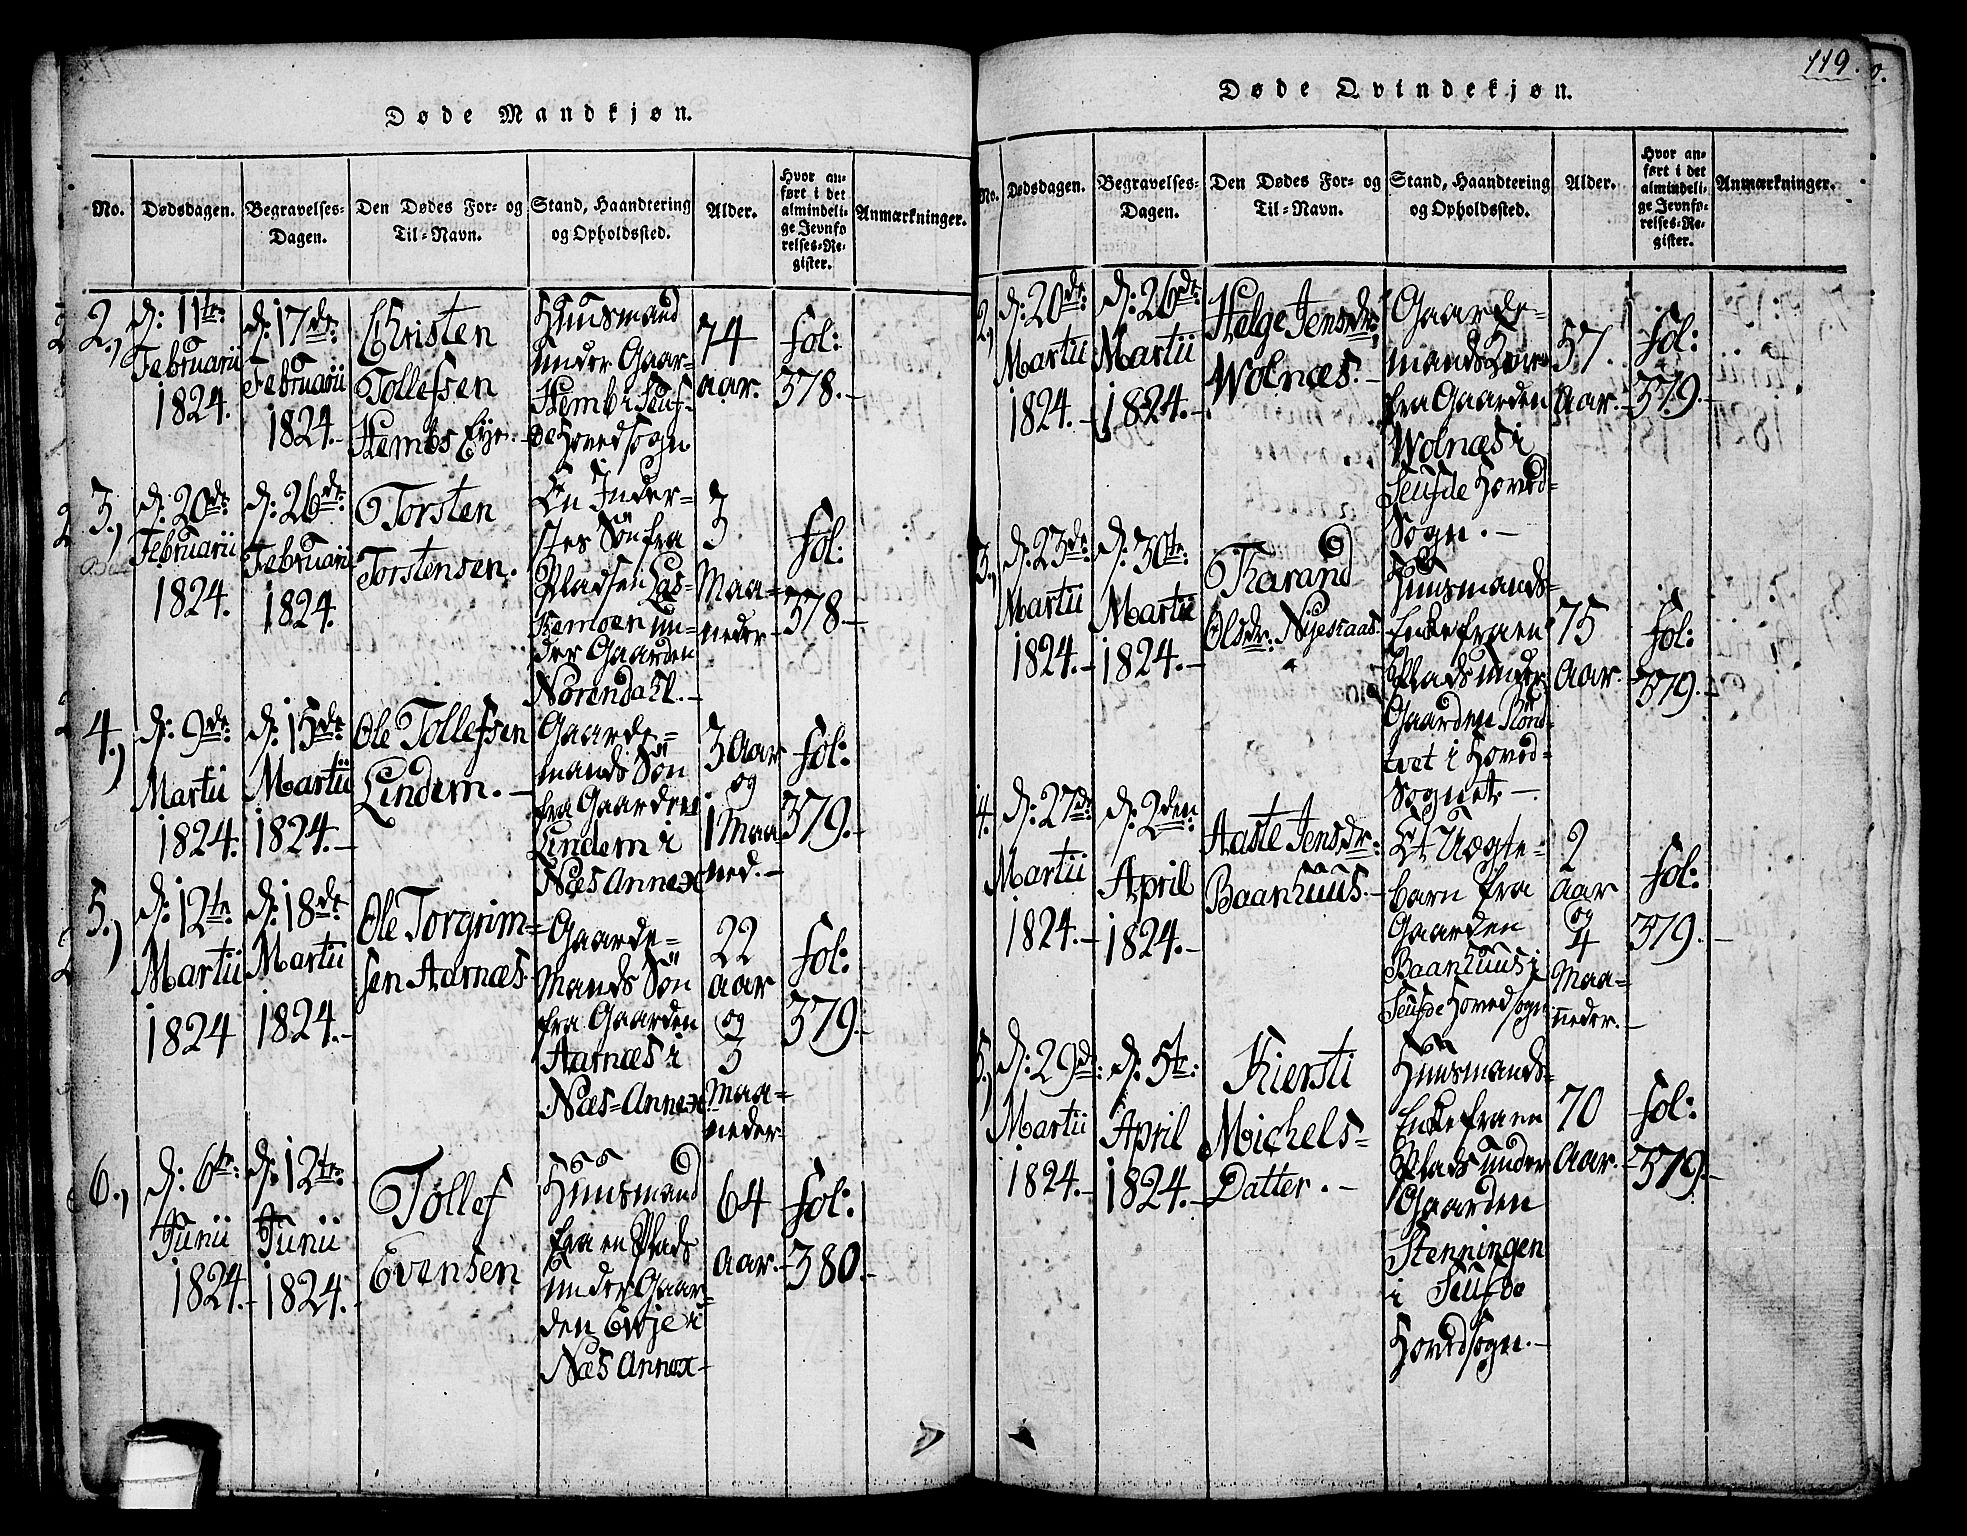 Døde Mandkjøn.
No.
Dødsdagen.
Begravelses-
Dagen.
Den Dødes For- og
Til-Navn.
Stand, Haandtering
og Opholdssted.
Alder.
Hvor an-
ført i det
almindeli-
ge Jevnfø
relses-Re-
gister.
Anmærkninger.
2.,
d: 11te
Februarii
1824.
d: 17de
Februarii
1824.
Christen
Tollefsen
Hembs Eje.
Huusmand
under Gaar-
Hemb i Seuf-
de Hovedsogn
74
aar.
fol:
378.
3.,
d: 20de
Februarii
1824.
d: 26de
Februarii
1824.
Torsten
Torstensen.
En Inder-
stes Søn fra
Pladsen Las-
hemoen un-
der Gaarden
Nørendahl.
3
Maa-
neder
fol:
378.
4.,
d: 9de
Martii
1824.
d: 15de
Martii
1824.
Ole Tollefsen
Lindem.
Gaarde-
mands Søn
fra Gaarden
Lindem i
Næs Annex
3 Aar
og
1 Maa
ned.
fol:
379.
5.,
d: 12te
Martii
1824
d: 18de
Martii
1824.
Ole Torgrim-
sen Aarnæs.
Gaarde-
Mands Søn
fra Gaarden
Aarnæs i
Næs-Annex
22
aar
og
3
Maa-
neder
fol:
379.
6.,
d: 6te
Junii
1824.
d: 12te
Junii
1824.
Tollef
Evensen
Huusmand
fra en Plads
under Gaar-
den Evje i
Næs Annex
64
aar.
fol:
380.
119.
Døde Qvindekjøn.
No.
Dødsdagen.
Begravelses-
Dagen.
Den Dødes For- og
Til-Navn.
Stand, Haandtering
og Opholdssted.
Alder.
Hvor an-
ført i det
almindeli-
ge Jevnfø-
relses-Re-
gister.
Anmærkninger.
2,
d: 20de
Martii
1824.
d: 26de
Martii
1824.
Helge Jensdr:
Wolnæs.
Gaarde-
mands
fra Gaarden
Wolnæs i
Seufde Hoved-
Sogn.
57.
Aar.
fol:
379.
3,
d: 23de
Martii
1824.
d: 30te
Martii
1824.
Tharand
Olsdr: Nyestaas.
Huusmands-
Enke fra en
Plads under
Gaarden Rønd-
tvet i Hoved-
Sognet.
75
Aar.
fol:
379.
4.
d: 27de
Martii
1824.
d: 2den
April
1824.
Aaste Jensdr:
Baanhuus.
Et Uægte-
barn fra
Gaarden
Baanhuus i
Seufde Hovedsogn
2
aar
og
4
Maa-
neder.
fol:
379.
5,
d: 29de
Martii
1824.
d: 5te
April
1824.
Kiersti
Michels-
Datter.
Huusmands-
Enke fra en
Plads under
Gaarden
Stenningen
i Seufde
Hovedsogn.
70
Aar.
fol:
379.